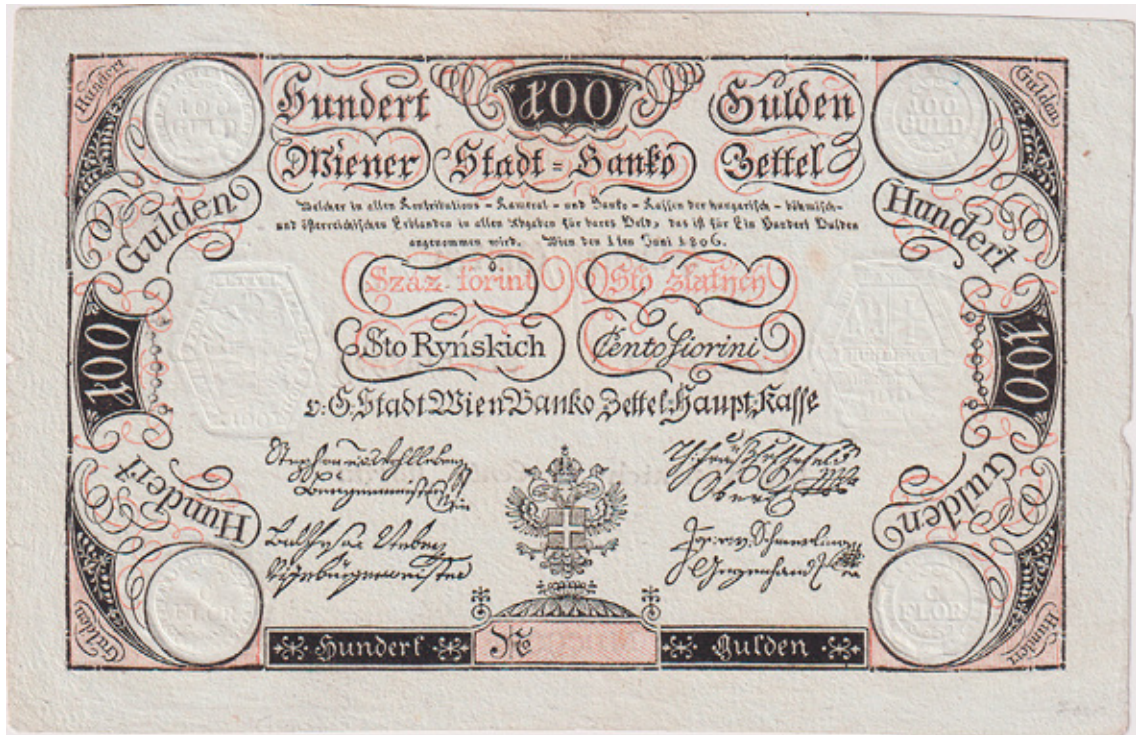 Hundert 100 Gulden
Wiener Stadt = Banko Zettel
Welcher in allen Kontributions - Kameral - und Banko - Kassen der hungarisch - böhmisch -
und österreichischen Erblanden in allen Abgaben für bares Geld, das ist für Ein Hundert Gulden
angenommen wird. Wien den 1ten Juni 1806.
Száz forint Sto zlatych
Sto Ryńskich Cento fiorini
v: G. Stadt Wien Banko Zettel Haupt Kasse
Hundert Nro Gulden
Hundert
Gulden
100
Hundert
Gulden
Gulden
Hundert
100
Gulden
Hundert
100
GULD
100
GULD
FLOR
C
FLOR